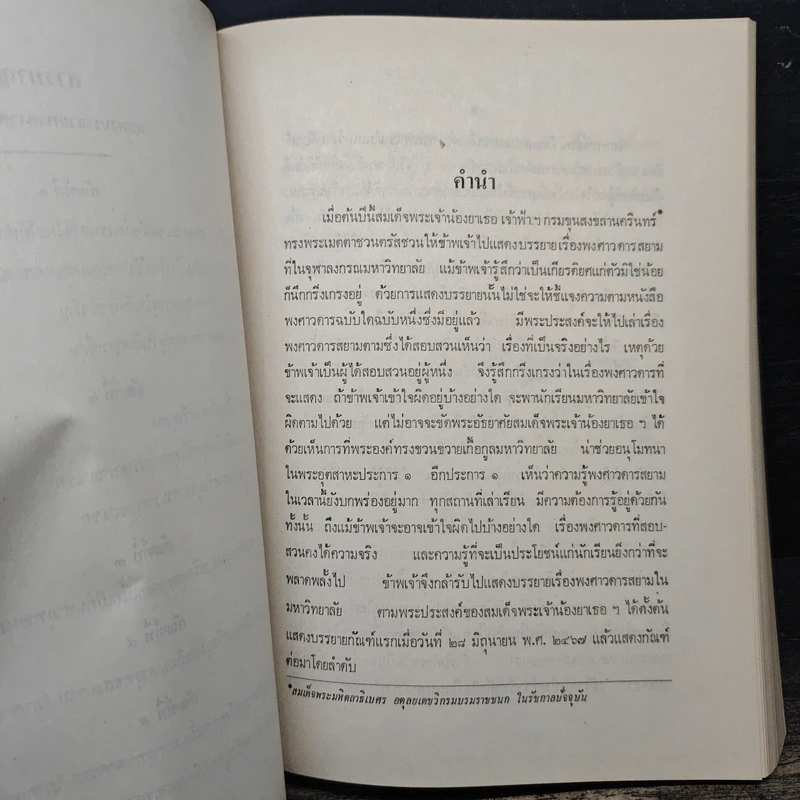 คำนำ
เมื่อต้นปีนี้สมเด็จพระเจ้าน้องยาเธอ เจ้าฟ้า ฯ กรมขุนสงขลานครินทร์*
ทรงพระเมตตาชวนตรัสชวนให้ข้าพเจ้าไปแสดงบรรยายเรื่องพงศาวดารสยาม
ที่ในจุฬาลงกรณมหาวิทยาลัย แม้ข้าพเจ้ารู้สึกว่าเป็นเกียรติยศแก่ตัวมิใช่น้อย
ก็นึกกริ่งเกรงอยู่ ด้วยการแสดงบรรยายนั้นไม่ใช่จะให้ชี้แจงความตามหนังสือ
พงศาวดารฉบับใดฉบับหนึ่งซึ่งมีอยู่แล้ว มีพระประสงค์จะให้ไปเล่าเรื่อง
พงศาวดารสยามตามซึ่งได้สอบสวนเห็นว่า เรื่องที่เป็นจริงอย่างไร เหตุด้วย
ข้าพเจ้าเป็นผู้ได้สอบสวนอยู่ผู้หนึ่ง จึงรู้สึกกริ่งเกรงว่าในเรื่องพงศาวดารที่
จะแสดง ถ้าข้าพเจ้าเข้าใจผิดอยู่บ้างอย่างใด จะพานักเรียนมหาวิทยาลัยเข้าใจ
ผิดตามไปด้วย แต่ไม่อาจจะขัดพระอัธยาศัยสมเด็จพระเจ้าน้องยาเธอ ฯ ได้
ด้วยเห็นการที่พระองค์ทรงขวนขวายเกื้อกูลมหาวิทยาลัย น่าช่วยอนุโมทนา
ในพระอุตสาหะประการ ๑ อีกประการ ๑ เห็นว่าความรู้พงศาวดารสยาม
ในเวลานี้ยังบกพร่องอยู่มาก ทุกสถานที่เล่าเรียน มีความต้องการรู้อยู่ด้วยกัน
ทั้งนั้น ถึงแม้ข้าพเจ้าจะอาจเข้าใจผิดไปบ้างอย่างใด เรื่องพงศาวดารที่สอบ-
สวนคงได้ความจริง และความรู้ที่จะเป็นประโยชน์แก่นักเรียนยิ่งกว่าที่จะ
พลาดพลั้งไป ข้าพเจ้าจึงกล้ารับไปแสดงบรรยายเรื่องพงศาวดารสยามใน
มหาวิทยาลัย ตามพระประสงค์ของสมเด็จพระเจ้าน้องยาเธอ ฯ ได้ตั้งต้น
แสดงบรรยายกัณฑ์แรกเมื่อวันที่ ๒๘ มิถุนายน พ.ศ. ๒๔๖๗ แล้วแสดงกัณฑ์
ต่อมาโดยลำดับ
*สมเด็จพระมหิตลาธิเบศร อดุลยเดชวิกรมบรมราชชนก ในรัชกาลปัจจุบัน